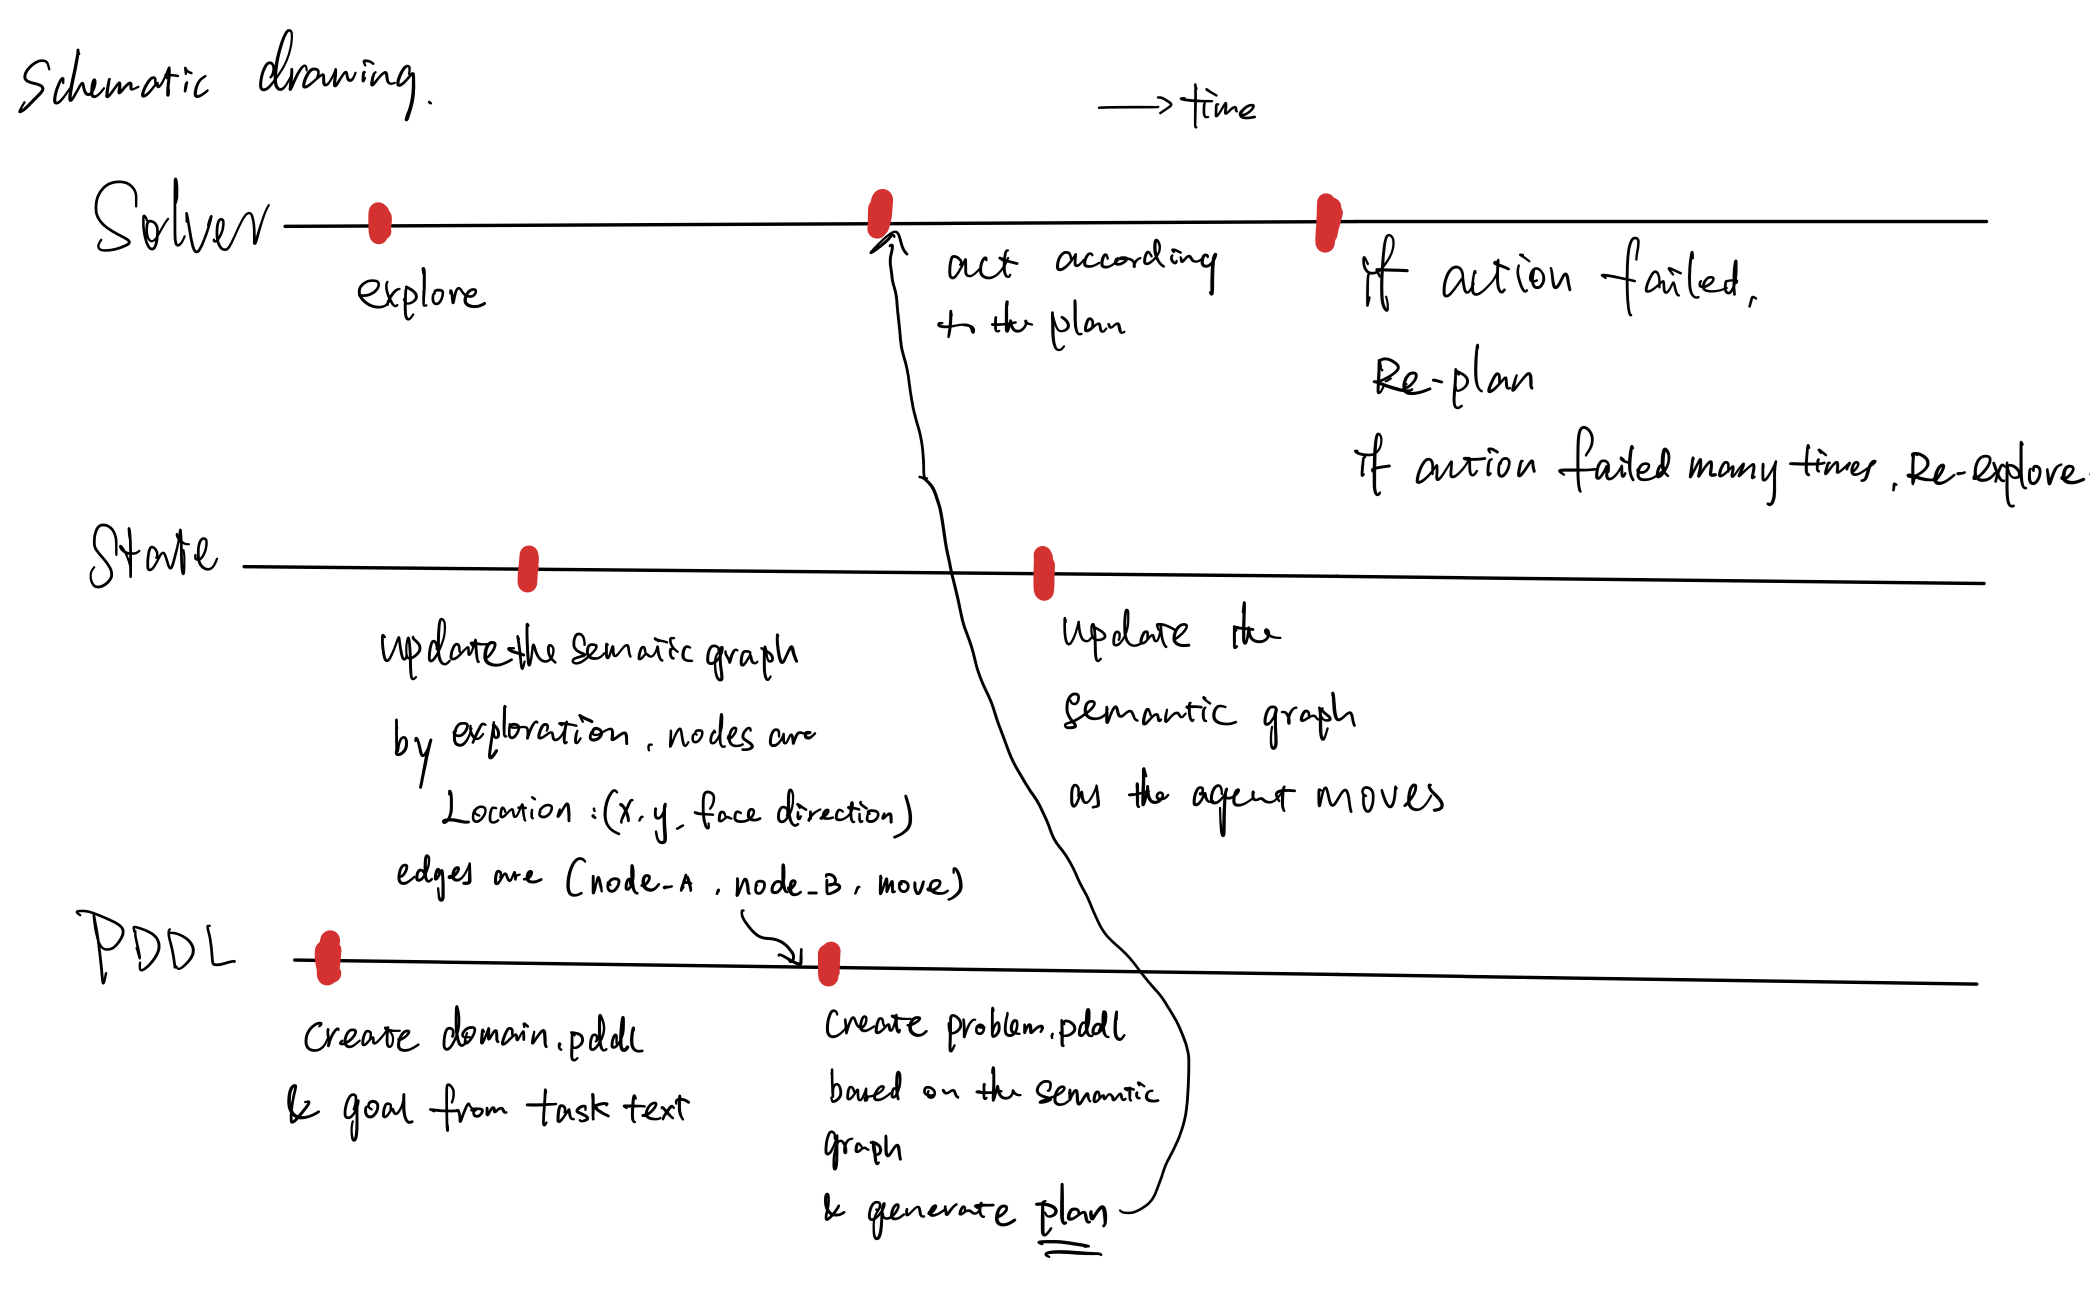 Schematic drawing.
→ time
Solver
explore
act according
to the plan
if action failed,
Re-plan
if action failed many times, Re-explore.
State
update the sematic graph
by exploration, nodes are
Location : (x, y, face direction)
edges are (node_A, node_B, move)
update the
semantic graph
as the agent moves
PDDL
Create domain.pddl
& goal from task text
Create problem.pddl
based on the semantic
graph
& generate plan